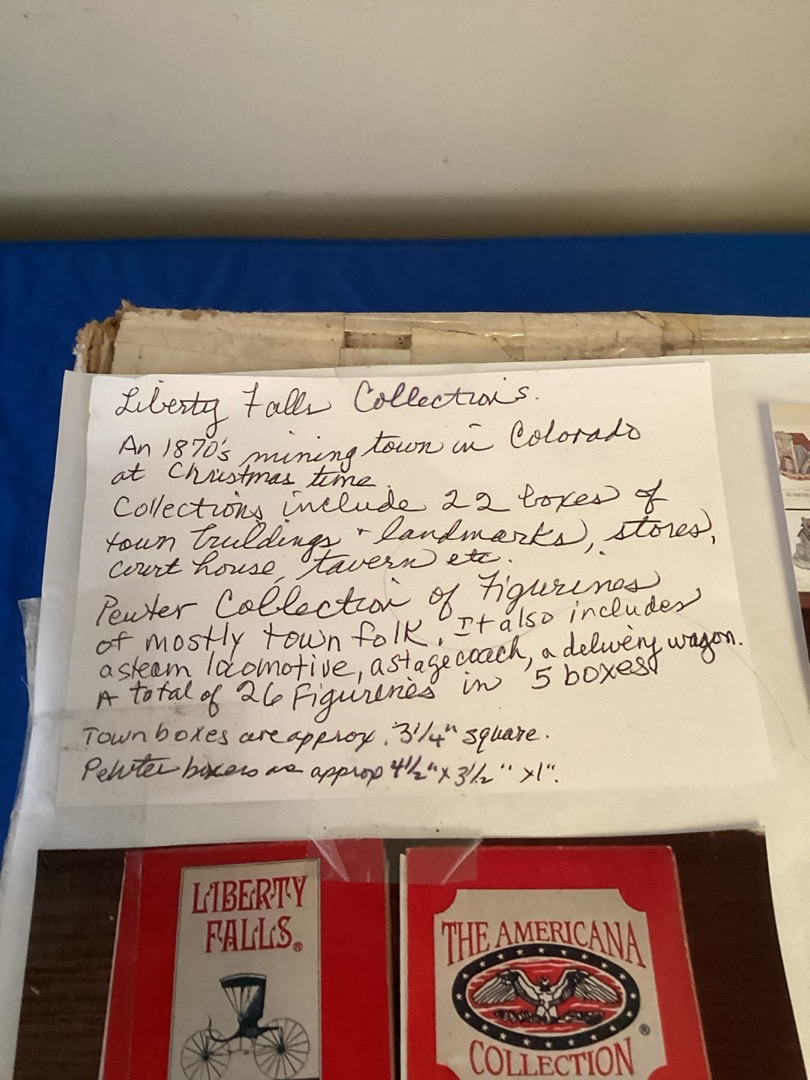 Liberty Falls Collections.
An 1870's mining town in Colorado
at Christmas time.
Collections include 22 boxes of
town buildings + landmarks, stores,
court house, tavern etc.
Pewter Collection of Figurines
of mostly town folk. It also includes
a steam locomotive, a stage coach, a delivery wagon.
A total of 26 Figurines in 5 boxes
Town boxes are approx. 3 1/4" square.
Pewter boxes are approx 4 1/2" x 3 1/2" x 1".
LIBERTY
FALLS®
THE AMERICANA
COLLECTION®